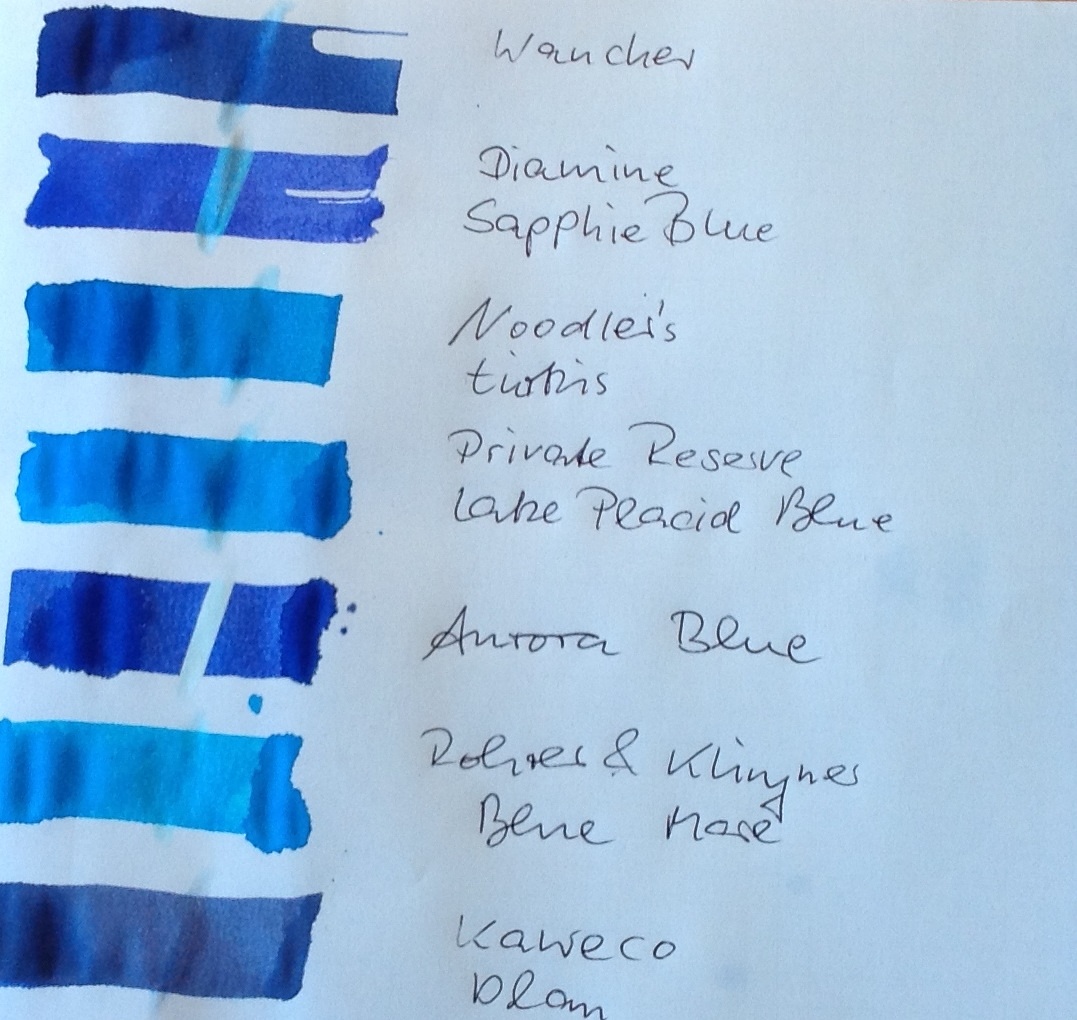 Wancher
Diamine
Sapphie Blue
Noodler's
türkis
Private Reserve
Lake Placid Blue
Aurora Blue
Rohrer & Klingner
Blue Mare
Kaweco
blau